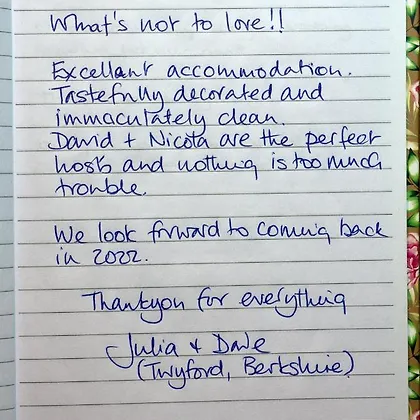 What's not to love!!
Excellent accommodation.
Tastefully decorated and
immaculately clean.
David + Nicola are the perfect
hosts and nothing is too much
trouble.
We look forward to coming back
in 2022.
Thankyou for everything
Julia + Dave
(Twyford, Berkshire)